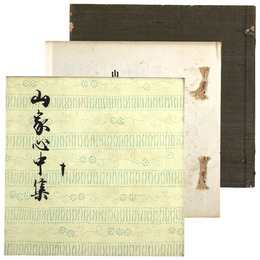 山家心中集
山